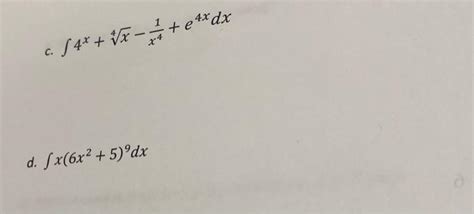 c. ∫ 4ˣ + ∜x − 1/x⁴ + e⁴ˣ dx
d. ∫ x(6x² + 5)⁹ dx